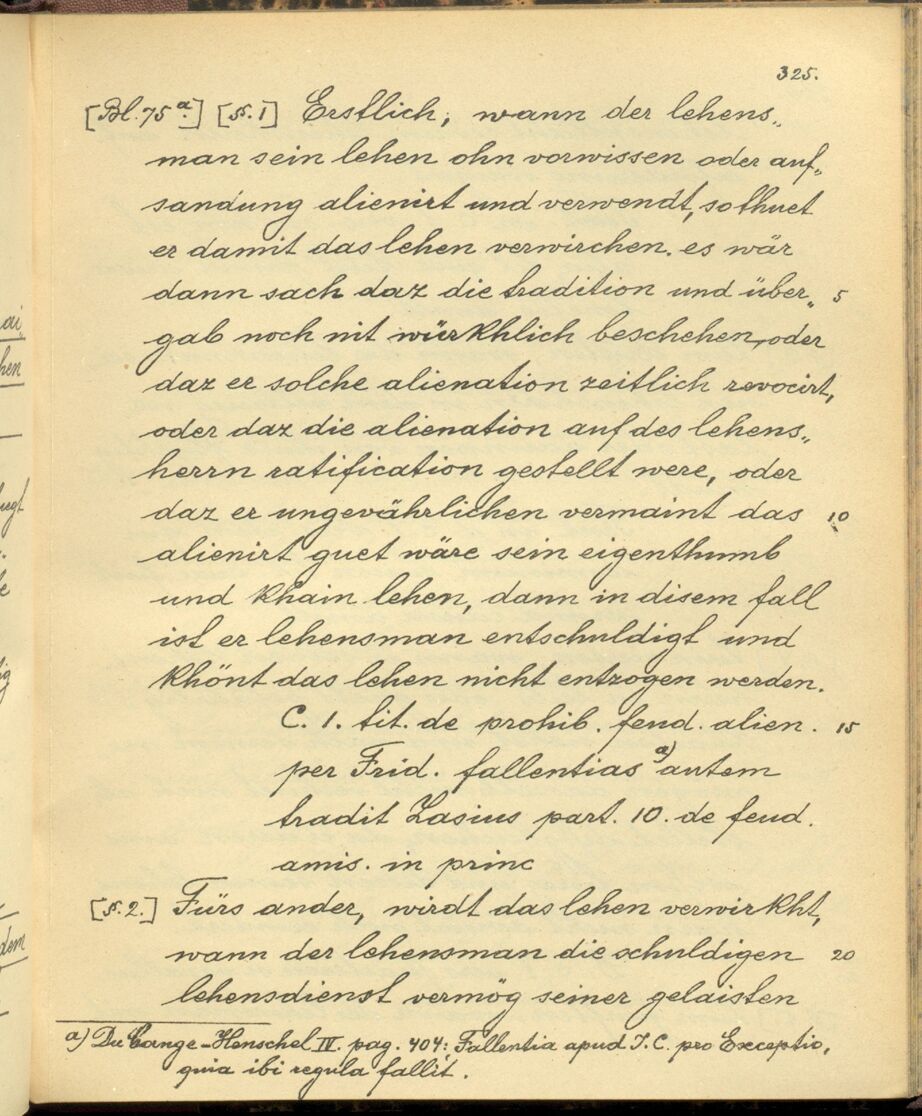 325.
[Bl. 75 a.] [§. 1] Erstlich, wann der lehens„
man sein lehen ohn vorwissen oder auf„
sandung alienirt und verwendt, so thuet
er damit das lehen verwirchen. es wär
dann sach daz die tradition und über„ 5
gab noch nit würkhlich beschehen, oder
daz er solche alienation zeitlich revocirt,
oder daz die alienation auf des lehens„
herrn ratification gestellt were, oder
daz er ungevährlichen vermaint das 10
alienirt guet wäre sein eigenthumb
und khain lehen, dann in disem fall
ist er lehensman entschuldigt und
khönt das lehen nicht entzogen werden.
C. 1. tit. de prohib. feud. alien. 15
per Frid. fallentias a) autem
tradit Zasius part. 10. de feud.
amis. in princ
[§. 2.] Fürs ander, wirdt das lehen verwirkht,
wann der lehensman die schuldigen 20
lehensdienst vermög seiner gelaisten
a) Du Cange-Henschel IV. pag. 404: Fallentia apud I.C. pro Exceptio,
quia ibi regula fallit.
ai
hen
dem